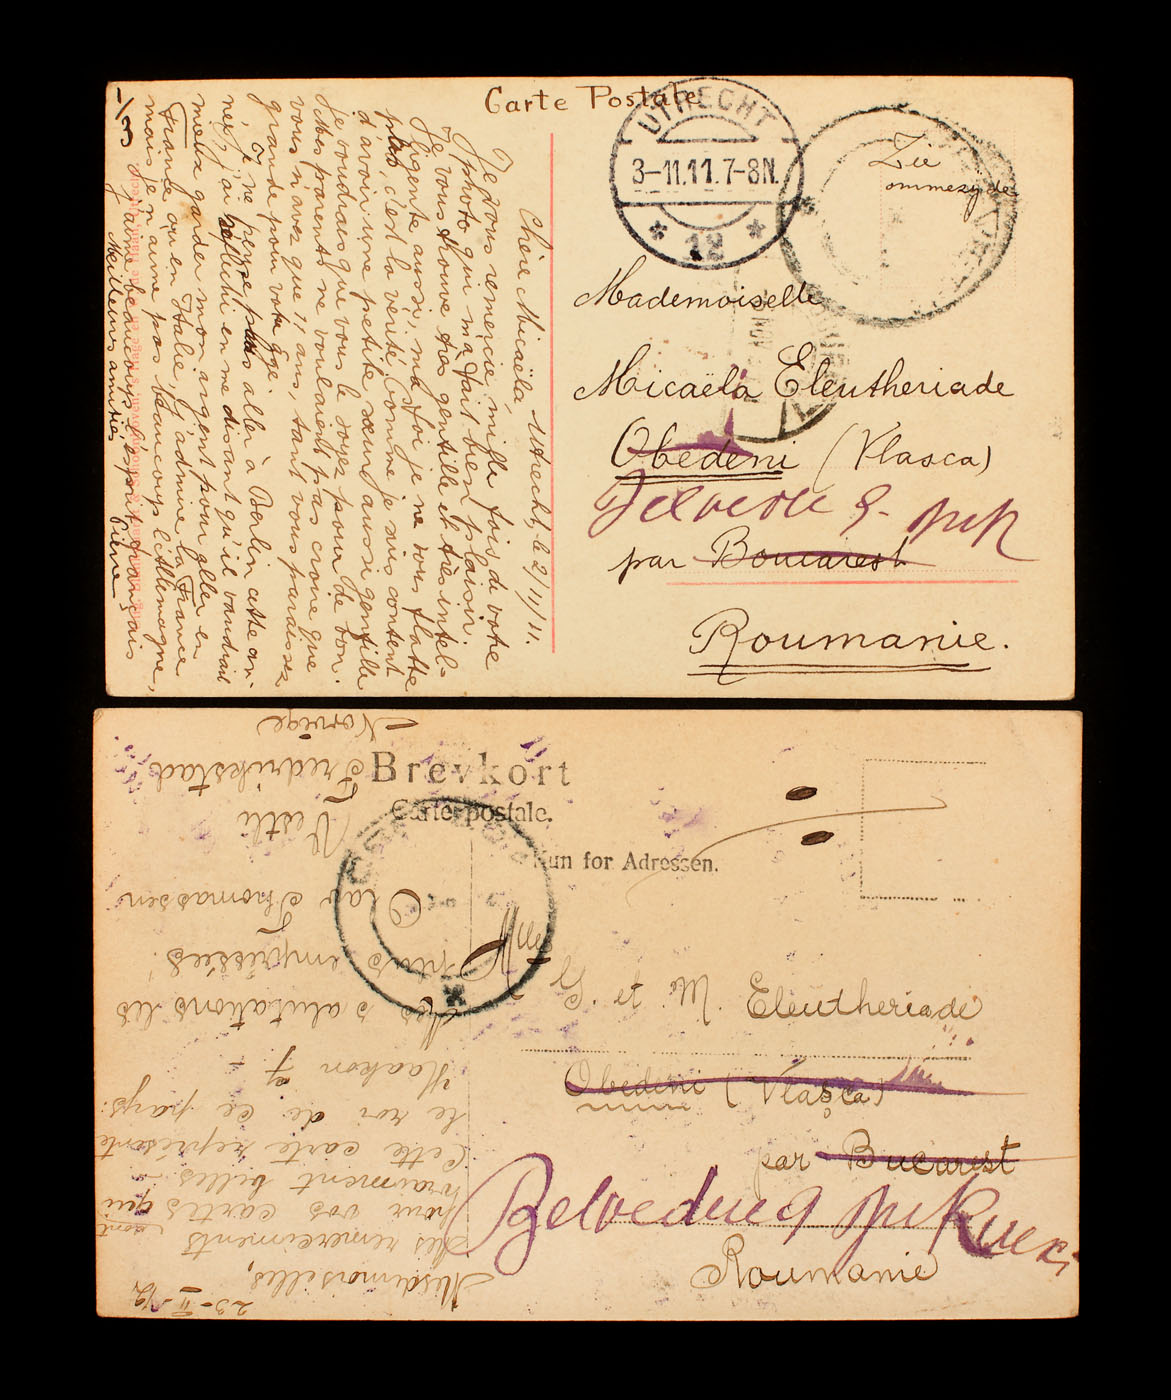 Carte Postale
UTRECHT
3-11.11.7-8N.
12
Zie
ommezyde
Mademoiselle
Micaëla Eleutheriade
Obedeni (Vlasca)
par Boucarest
Roumanie.
Utrecht, le 2/11/11.
Chère Micaëla,
Je vous remercie mille fois de votre
photo qui m'a fait bien plaisir.
Je vous trouve très gentille et très intel-
ligente aussi, ma foi je ne vous flatte
pas, c'est la vérité. Comme je suis content
d'avoir une petite soeur aussi gentille
Je voudrais que vous le soyez pour de bon.
Mes parents ne voulaient pas croire que
vous n'avez que 11 ans tant vous paraissez
grande pour votre âge.
Je ne pense pas aller à Berlin cette an-
née, j'ai réfléchi en me disant qu'il vaudrait
mieux garder mon argent pour aller en
France ou en Italie, j'admire la France
mais je n'aime pas beaucoup l'Allemagne,
j'aime beaucoup l'esprit français
Meilleures amitiés
Pierre
Brevkort
Carte postale.
Kun for Adressen.
Eleutheriade
Obedeni (Vlasca)
par Bucarest
Roumanie
23-II-12
Mesdemoiselles,
Mes remerciments
pour vos cartes qui sont
vraiment belles.
Cette carte représente
le roi de ce pays:
Haakon 7.
Mes salutations les
plus empressées.
Olav Thomassen
Vestli
Fredrikstad
Norvège